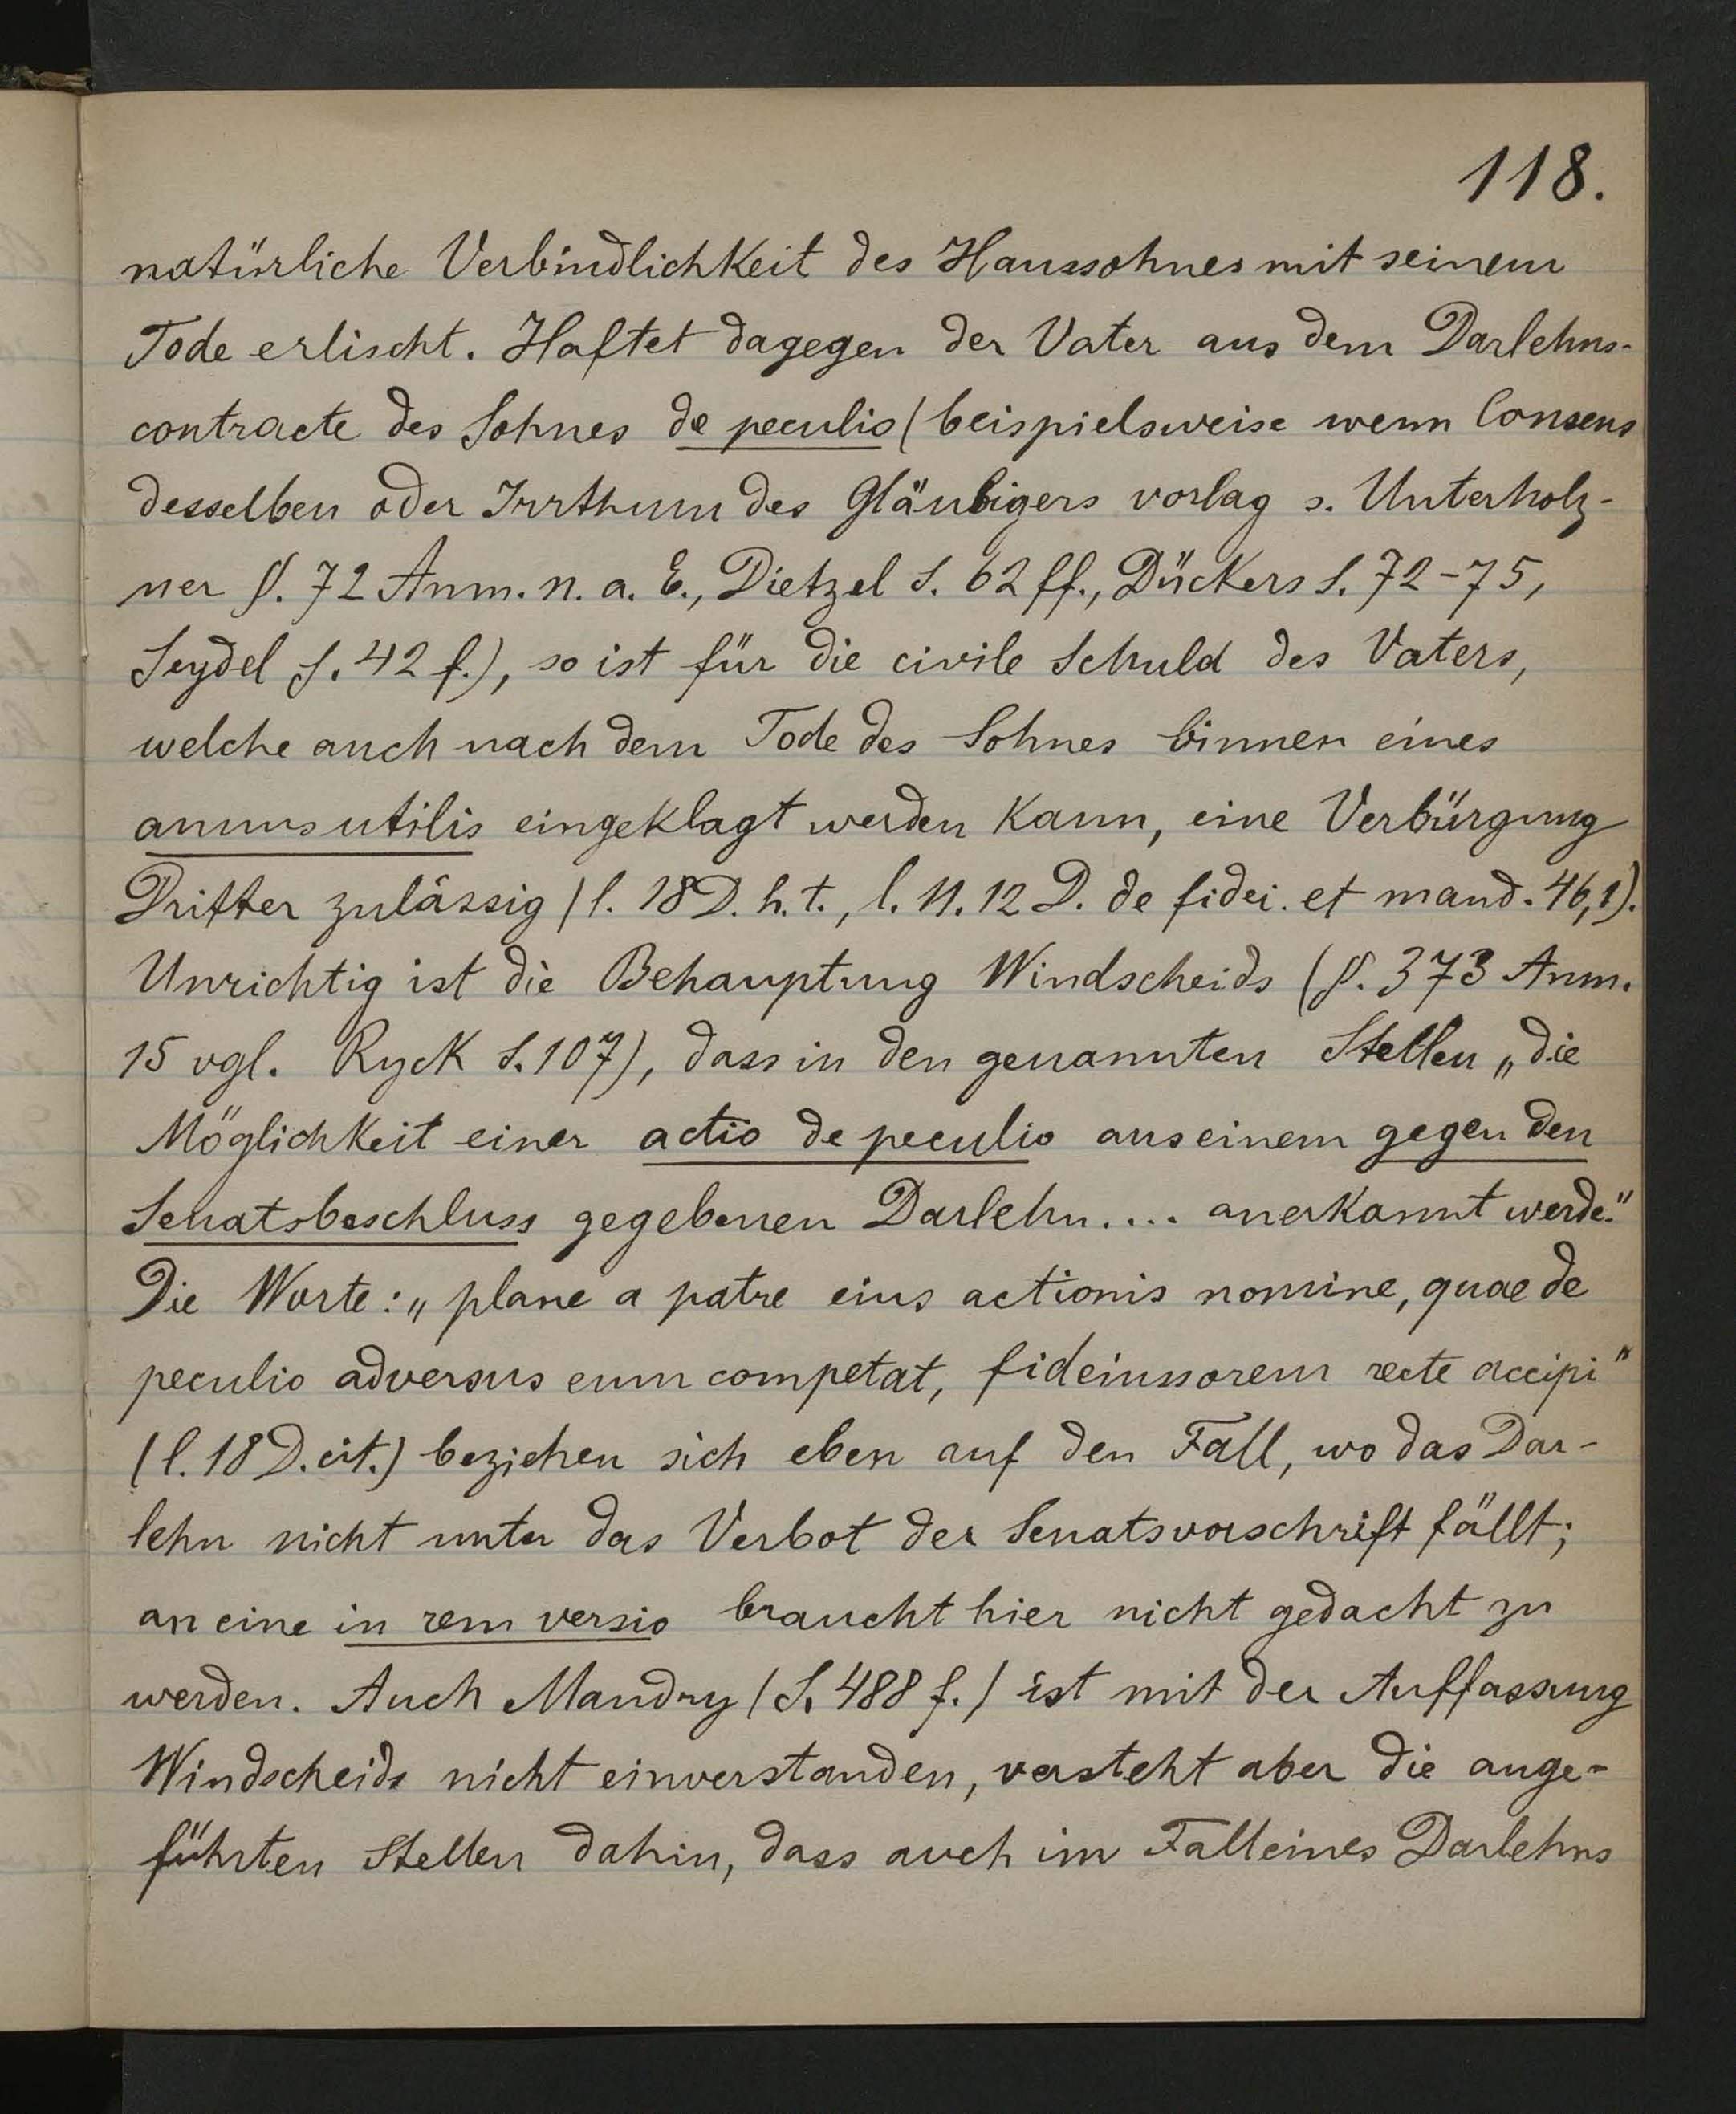 118.
natürliche Verbindlichkeit des Haussohnes mit seinem
Tode erlischt. Haftet dagegen der Vater aus dem Darlehns-
contracte des Sohnes de peculio (beispielsweise wenn Consens
desselben oder Irrthum des Gläubigers vorlag s. Unterholz-
ner §. 72 Anm. n. a. E., Dietzel S. 62 ff., Dückers S. 72-75,
Seydel S. 42 f.), so ist für die civile Schuld des Vaters,
welche auch nach dem Tode des Sohnes binnen eines
annus utilis eingeklagt werden kann, eine Verbürgung
Dritter zulässig (l. 18 D. h. t., l. 11. 12 D. de fidei. et mand. 46,1).
Unrichtig ist die Behauptung Windscheids (§. 373 Anm.
15 vgl. Ryck S. 107), dass in den genannten Stellen „die
Möglichkeit einer actio de peculio aus einem gegen den
Senatsbeschluss gegebenen Darlehn.... anerkannt werde."
Die Worte: „plane a patre eius actionis nomine, quae de
peculio adversus eum competat, fideiussorem recte accipi"
(l. 18 D. cit.) beziehen sich eben auf den Fall, wo das Dar-
lehn nicht unter das Verbot der Senatsvorschrift fällt;
an eine in rem versio braucht hier nicht gedacht zu
werden. Auch Mandry (S. 488 f.) ist mit der Auffassung
Windscheids nicht einverstanden, versteht aber die ange-
führten Stellen dahin, dass auch im Fall eines Darlehns